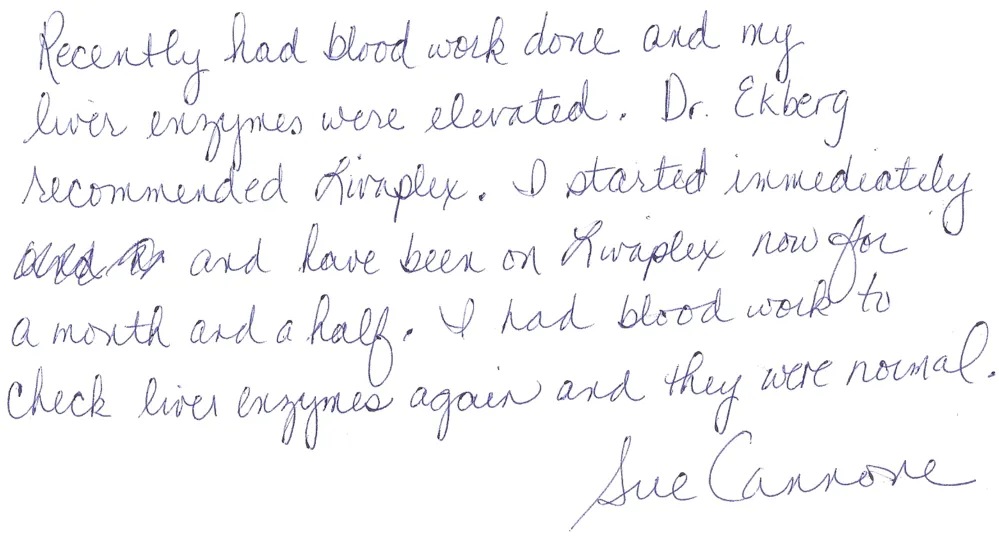 Recently had blood work done and my
liver enzymes were elevated. Dr. Ekberg
recommended Livaplex. I started immediately
and have been on Livaplex now for
a month and a half. I had blood work to
check liver enzymes again and they were normal.
Sue Cannone